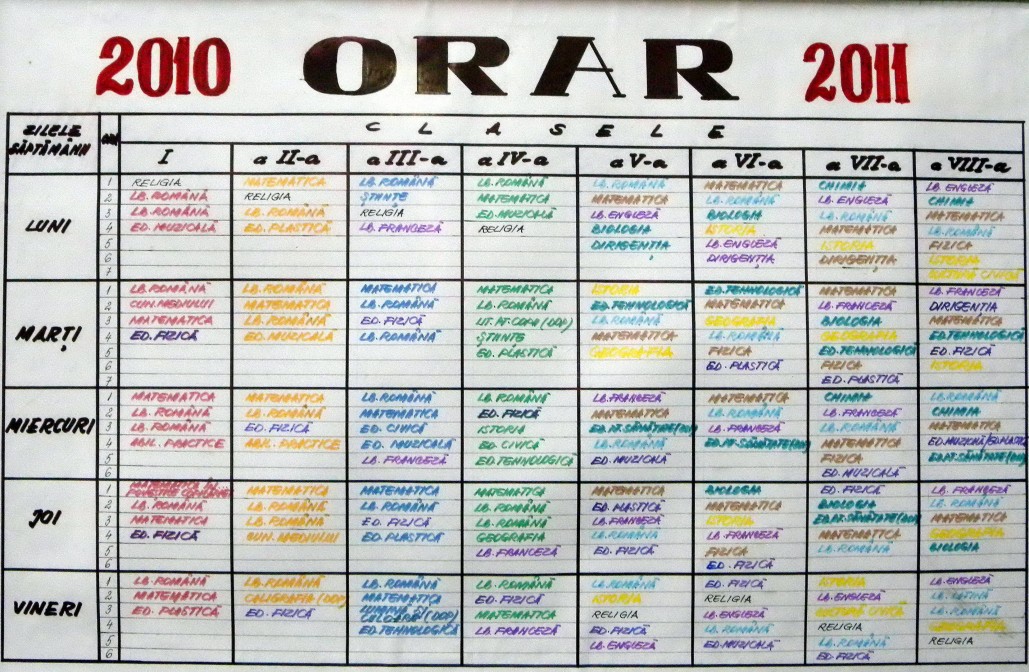 2010 ORAR 2011
ZILELE SĂPTĂMÂNII CLASELE
I a II-a a III-a a IV-a a V-a a VI-a a VII-a a VIII-a
LUNI
1 RELIGIA MATEMATICA LB. ROMÂNĂ LB. ROMÂNĂ LB. ROMÂNĂ MATEMATICA CHIMIA LB. ENGLEZĂ
2 LB. ROMÂNĂ RELIGIA ȘTIINȚE MATEMATICA MATEMATICA LB. ROMÂNĂ LB. ENGLEZĂ CHIMIA
3 LB. ROMÂNĂ LB. ROMÂNĂ RELIGIA ED. MUZICALĂ LB. ENGLEZĂ BIOLOGIA LB. ROMÂNĂ MATEMATICA
4 ED. MUZICALĂ ED. PLASTICĂ LB. FRANCEZĂ RELIGIA BIOLOGIA ISTORIA MATEMATICA LB. ROMÂNĂ
5 DIRIGENȚIA LB. ENGLEZĂ ISTORIA FIZICA
6 DIRIGENȚIA DIRIGENȚIA ISTORIA
7 CULTURĂ CIVICĂ
MARȚI
1 LB. ROMÂNĂ LB. ROMÂNĂ MATEMATICA MATEMATICA ISTORIA ED. TEHNOLOGICĂ MATEMATICA LB. FRANCEZĂ
2 CUN. MEDIULUI MATEMATICA LB. ROMÂNĂ LB. ROMÂNĂ ED. TEHNOLOGICĂ MATEMATICA LB. FRANCEZĂ DIRIGENTIA
3 MATEMATICA LB. ROMÂNĂ ED. FIZICĂ LIT. PT. COPII (OOP) LB. ROMÂNĂ GEOGRAFIA BIOLOGIA MATEMATICA
4 ED. FIZICĂ ED. MUZICALĂ LB. ROMÂNĂ ȘTIINȚE MATEMATICA LB. ROMÂNĂ GEOGRAFIA ED. TEHNOLOGICĂ
5 ED. PLASTICĂ GEOGRAFIA FIZICA ED. TEHNOLOGICĂ ED. FIZICĂ
6 ED. PLASTICĂ FIZICA ISTORIA
7 ED. PLASTICĂ
MIERCURI
1 MATEMATICA MATEMATICA LB. ROMÂNĂ LB. ROMÂNĂ LB. FRANCEZĂ MATEMATICA CHIMIA LB. ROMÂNĂ
2 LB. ROMÂNĂ LB. ROMÂNĂ MATEMATICA ED. FIZICĂ MATEMATICA LB. ROMÂNĂ LB. FRANCEZĂ CHIMIA
3 LB. ROMÂNĂ ED. FIZICĂ ED. CIVICĂ ISTORIA ED. PT. SĂNĂTATE LB. FRANCEZĂ LB. ROMÂNĂ MATEMATICA
4 ABIL. PRACTICE ABIL. PRACTICE ED. MUZICALĂ ED. CIVICĂ LB. ROMÂNĂ ED. PT. SĂNĂTATE MATEMATICA ED. MUZICALĂ/ED. PLASTICĂ
5 LB. FRANCEZĂ ED. TEHNOLOGICĂ ED. MUZICALĂ FIZICA ED. PT. SĂNĂTATE
6 ED. MUZICALĂ
JOI
1 MATEMATICA MATEMATICA MATEMATICA MATEMATICA MATEMATICA BIOLOGIA ED. FIZICĂ LB. FRANCEZĂ
2 LB. ROMÂNĂ LB. ROMÂNĂ LB. ROMÂNĂ LB. ROMÂNĂ ED. PLASTICĂ MATEMATICA BIOLOGIA LB. ROMÂNĂ
3 MATEMATICA LB. ROMÂNĂ ED. FIZICĂ LB. ROMÂNĂ LB. FRANCEZĂ ISTORIA ED. PT. SĂNĂTATE MATEMATICA
4 ED. FIZICĂ CUN. MEDIULUI ED. PLASTICĂ GEOGRAFIA LB. ROMÂNĂ LB. FRANCEZĂ MATEMATICA GEOGRAFIA
5 LB. FRANCEZĂ ED. FIZICĂ FIZICA LB. ROMÂNĂ BIOLOGIA
6 ED. FIZICĂ
VINERI
1 LB. ROMÂNĂ LB. ROMÂNĂ LB. ROMÂNĂ LB. ROMÂNĂ LB. ROMÂNĂ ED. FIZICĂ ISTORIA LB. ENGLEZĂ
2 MATEMATICA CALIGRAFIA (OOP) MATEMATICA ED. FIZICĂ ISTORIA RELIGIA LB. ENGLEZĂ LB. LATINĂ
3 ED. PLASTICĂ ED. FIZICĂ LUMINĂ ȘI CULOARE (OOP) MATEMATICA RELIGIA LB. ENGLEZĂ CULTURĂ CIVICĂ LB. ROMÂNĂ
4 ED. TEHNOLOGICĂ LB. FRANCEZĂ ED. FIZICĂ LB. ROMÂNĂ RELIGIA GEOGRAFIA
5 LB. ENGLEZĂ ED. MUZICALĂ LB. ROMÂNĂ RELIGIA
6 ED. FIZICĂ